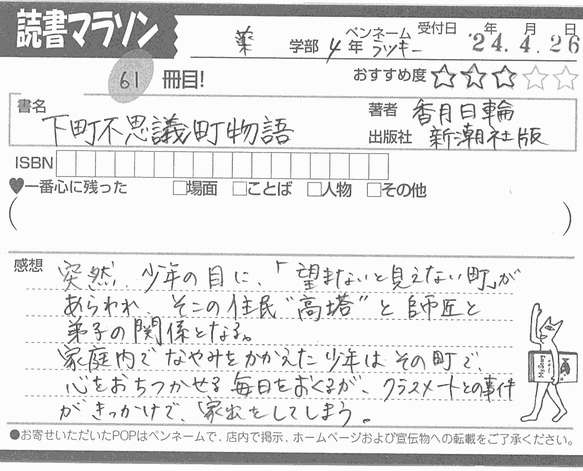 読書マラソン
薬 学部 4年 ペンネーム ラッキー 受付日 '24年.4月.26日
61 冊目! おすすめ度 ★★★☆☆
書名 下町不思議町物語
著者 香月日輪
出版社 新潮社版
ISBN
♥一番心に残った □場面 □ことば □人物 □その他
( )
感想 突然、少年の目に、「望まないと見えない町」が
あらわれ、そこの住民"高塔"と師匠と
弟子の関係となる。
家庭内でなやみをかかえた少年はその町で、
心をおちつかせる毎日をおくるが、クラスメートとの事件
がきっかけで、家出をしてしまう。
●お寄せいただいたPOPはペンネームで、店内で掲示、ホームページおよび宣伝物への転載をご了承ください。